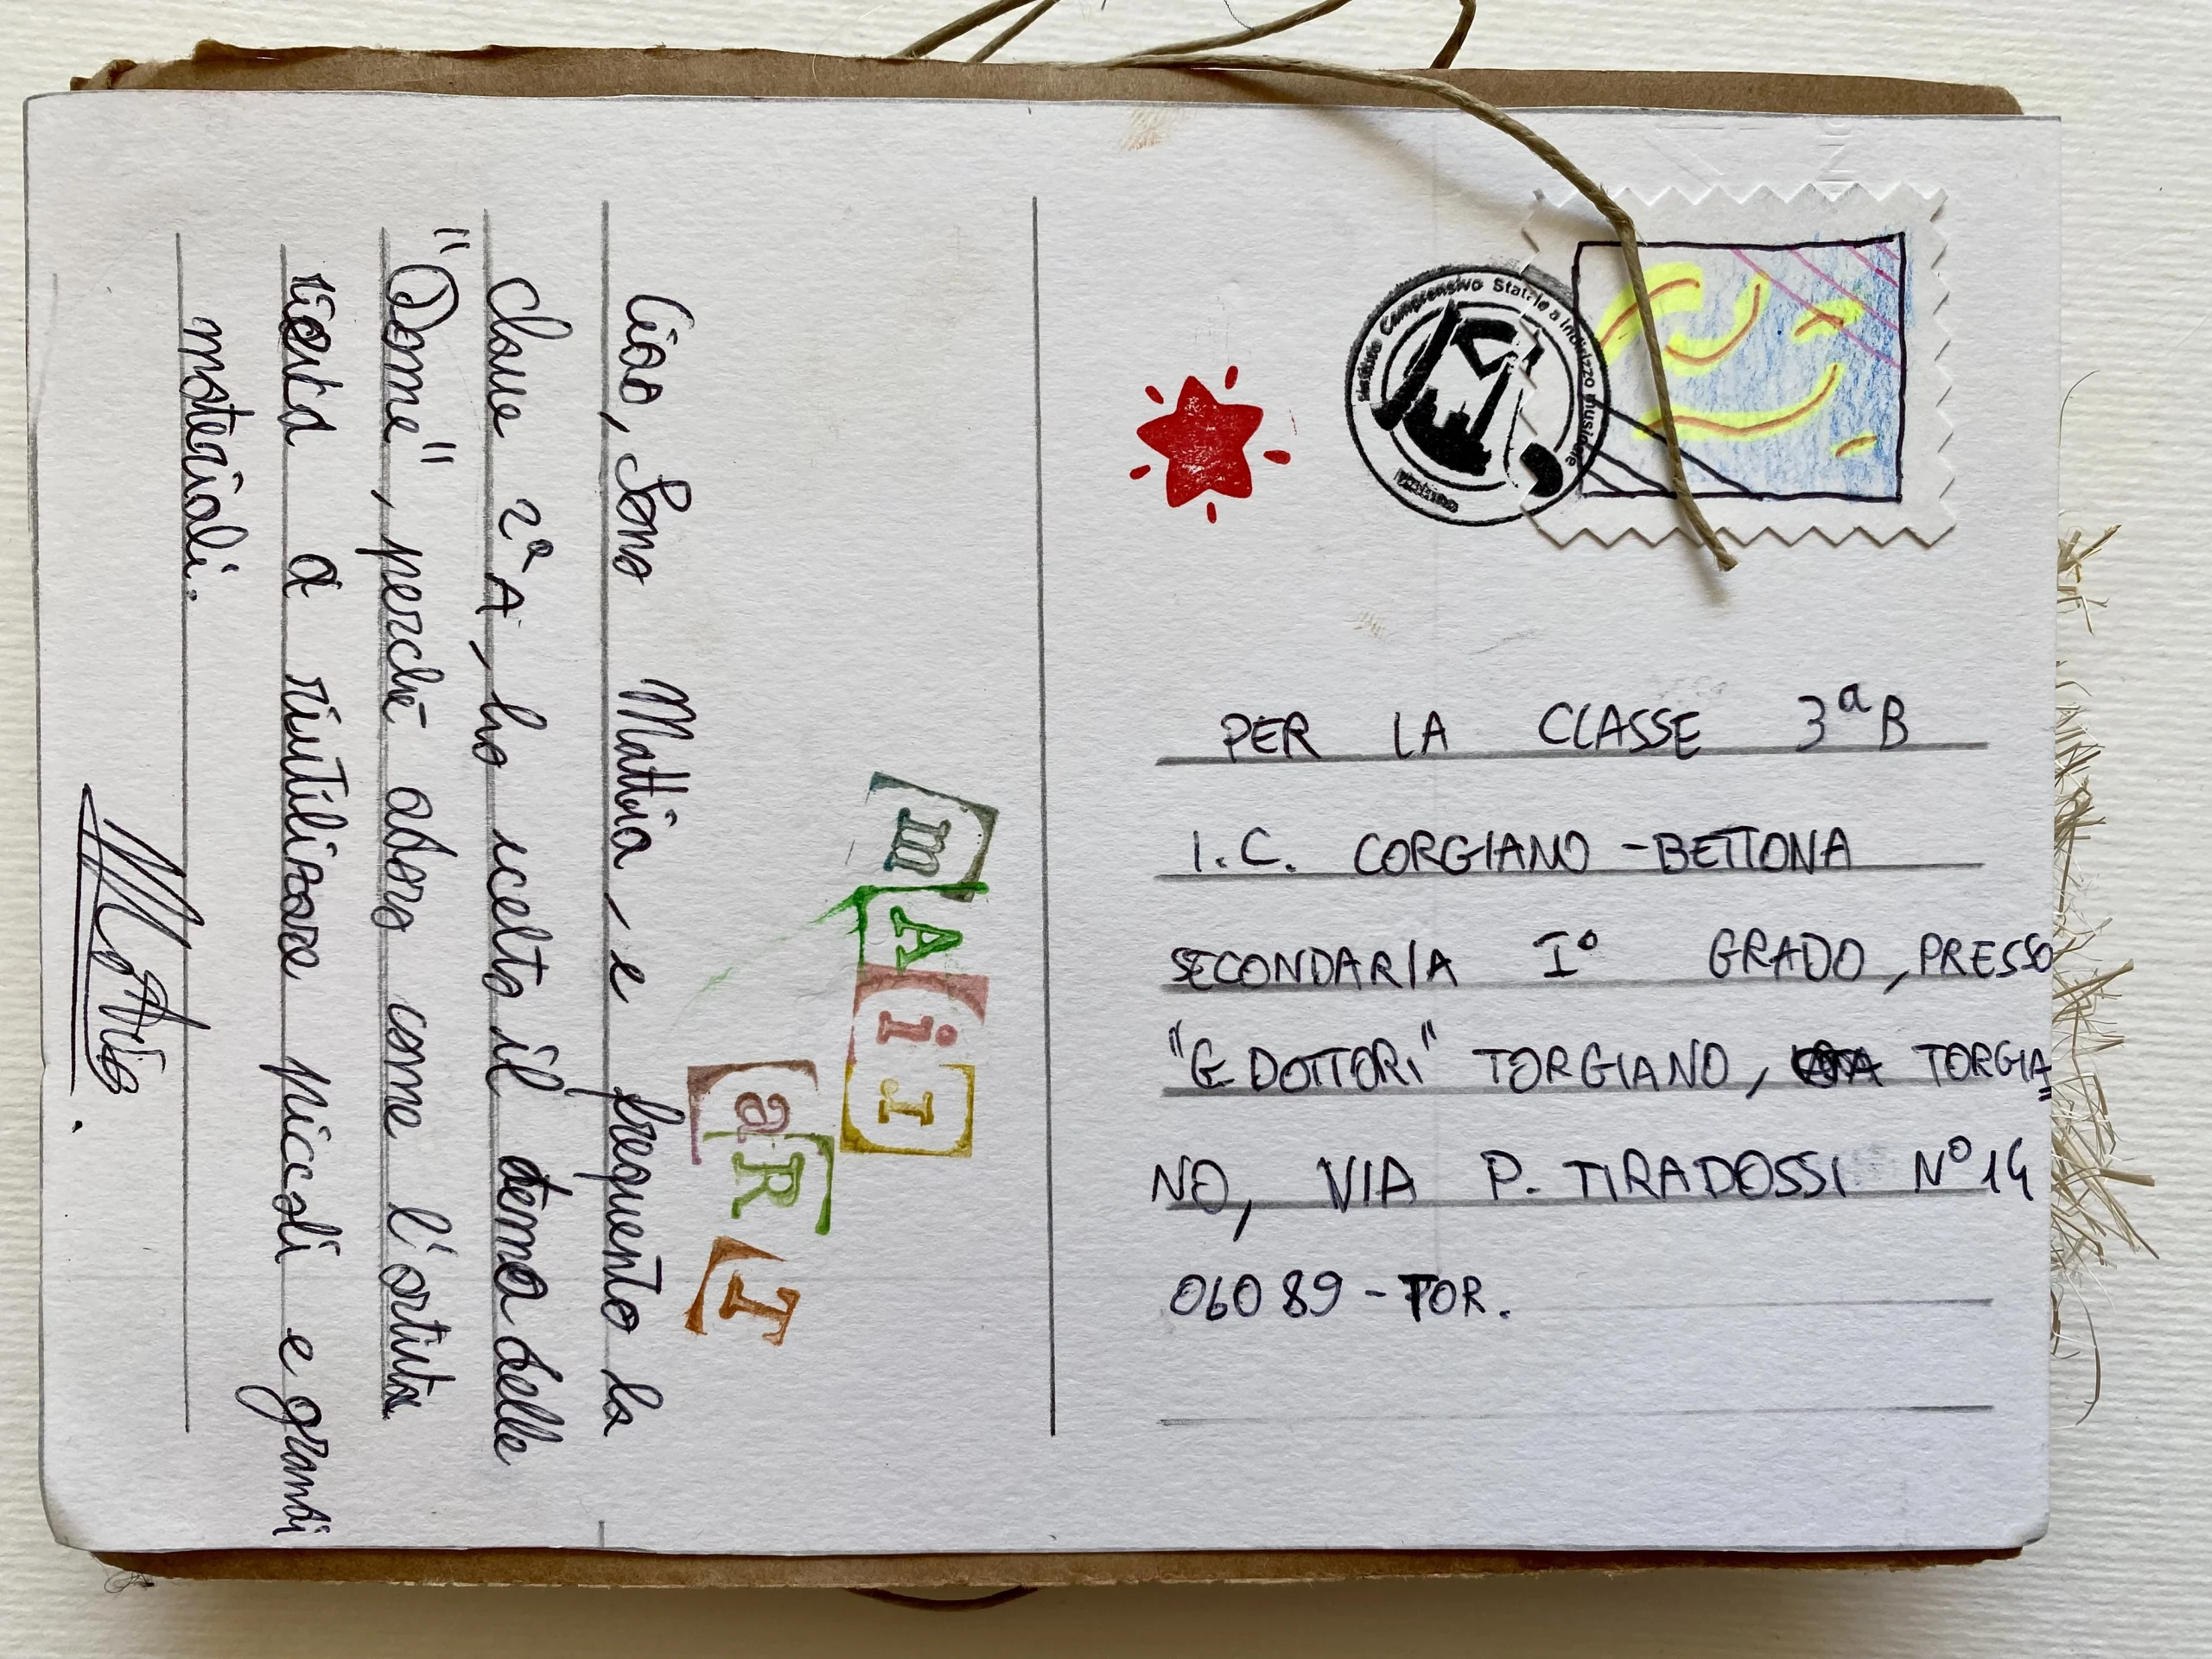 mAiI
aRT
Ciao, Sono Mattia, e frequento la
classe 2ª A, ho scelto il tema delle
", perchè adoro come l'artista
a riutilizzare piccoli e grandi
materiali.
Mattia.
Istituto Comprensivo Statale a Indirizzo Musicale
PER LA CLASSE 3ª B
I.C. CORGIANO -BETTONA
SECONDARIA I° GRADO, PRESSO
"G DOTTORI" TORGIANO, TORGIA
NO, VIA P. TIRADOSSI N° 14
06089 - TOR.